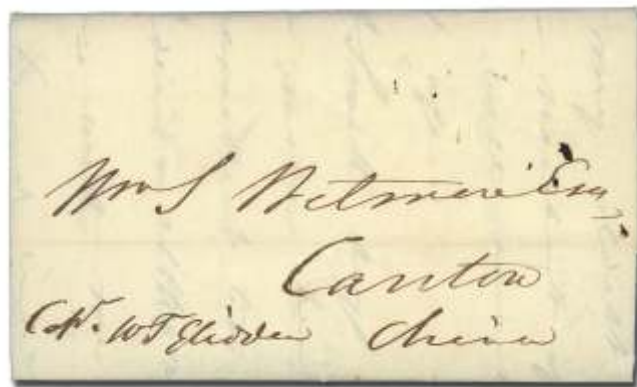 Wm S Wetmore Esq
Canton
Cpt. WT Glidden China